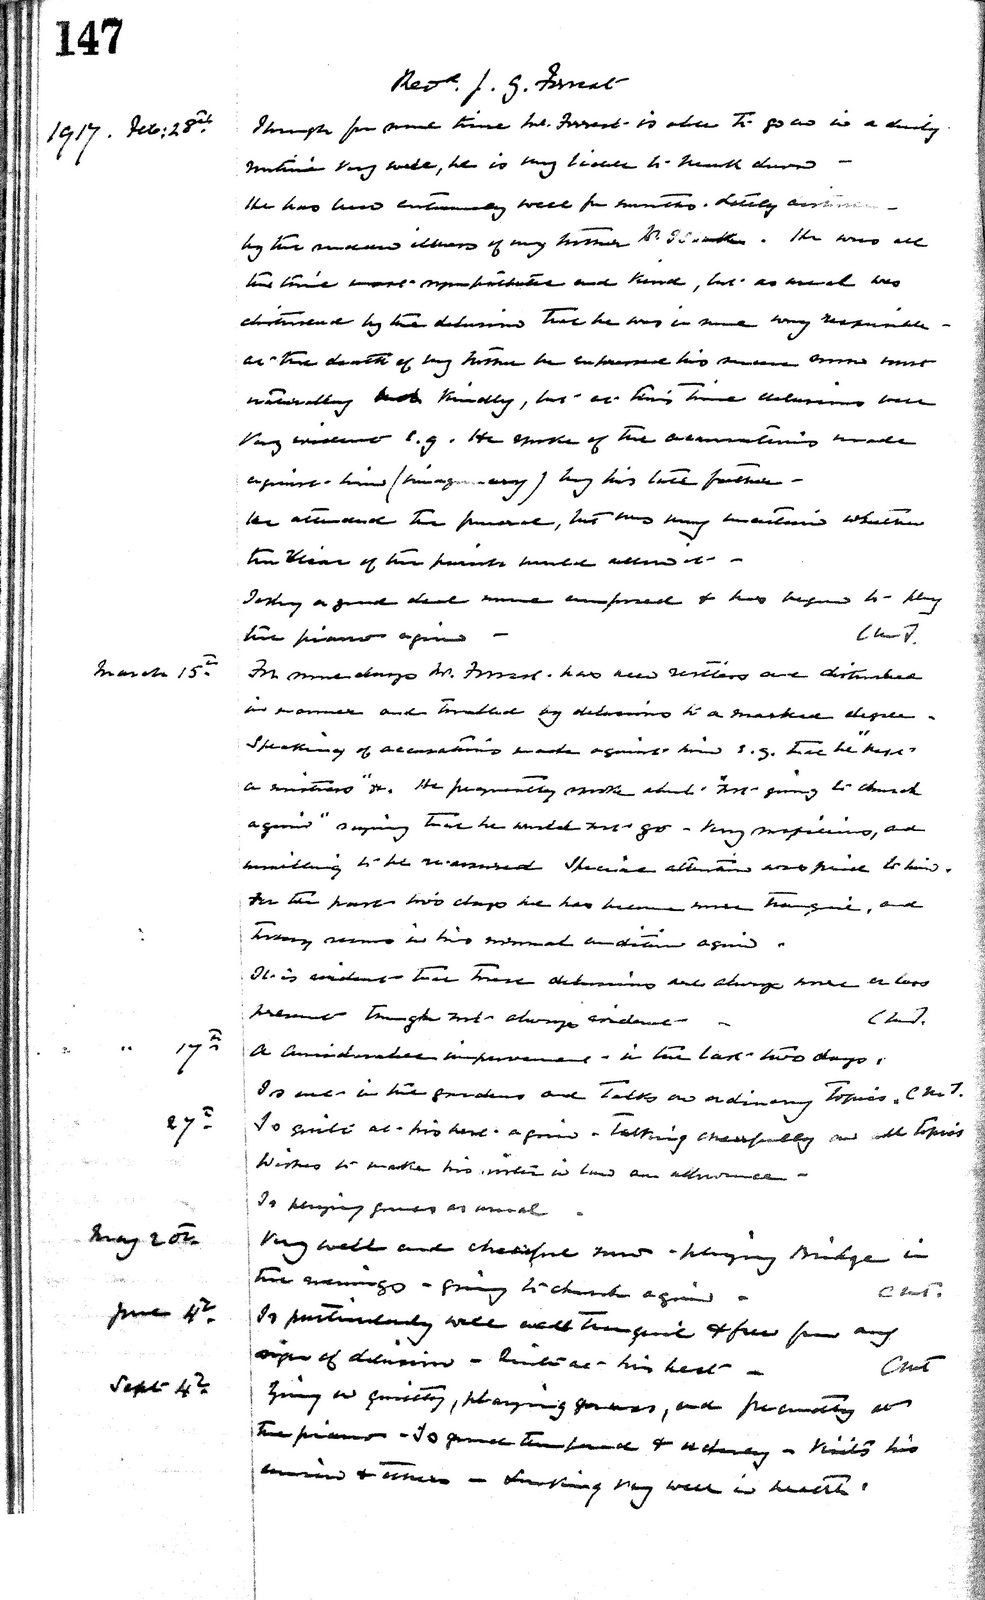 147
Revd. J. G. Forrest
1917. Feb: 28th. Though for some time Mr. Forrest is able to go on in a daily
routine very well, he is very liable to break down —
He has been extremely well for months. Lately distressed —
by the sudden illness of my brother Dr. He was all
the time most sympathetic and kind, but as usual was
distressed by the delusion that he was in some way responsible —
at the death of my brother he expressed his sincere most
naturally and kindly, but at this time delusions were
very evident e.g. He spoke of the accusations made
against him (imaginary) by his late father —
He attended the funeral, but was very uncertain whether
the Vicar of the parish would allow it —
Today a good deal more composed & has begun to play
the piano again — CMT.
March 15th. For some days Mr. Forrest has been restless and disturbed
in manner and troubled by delusions to a marked degree —
Speaking of accusations made against him e.g. that he "kept
a mistress" &c. He frequently spoke about "not going to church
again" saying that he would not go — Very suspicious, and
unwilling to be reassured Special attention was paid to him.
For the past two days he has become more tranquil, and
today seems in his normal condition again.
It is evident that these delusions are always more or less
present though not always evident — CMT.
" 17th A considerable improvement in the last two days.
Is out in the gardens and talks on ordinary topics. CMT.
27th Is quite at his best again — talking cheerfully on all topics
Wishes to make his sister in law an allowance —
Is playing games as usual.
May 20th Very well and cheerful now — playing Bridge in
the evenings — going to church again — CMT.
June 4th. Is particularly well and tranquil & free from any
sign of delusion — Quite at his best — CMT
Sept 4th. Going on quietly, playing games, and frequently at
the piano — Is good tempered & orderly — Visits his
cousin & others — Looking very well in health.